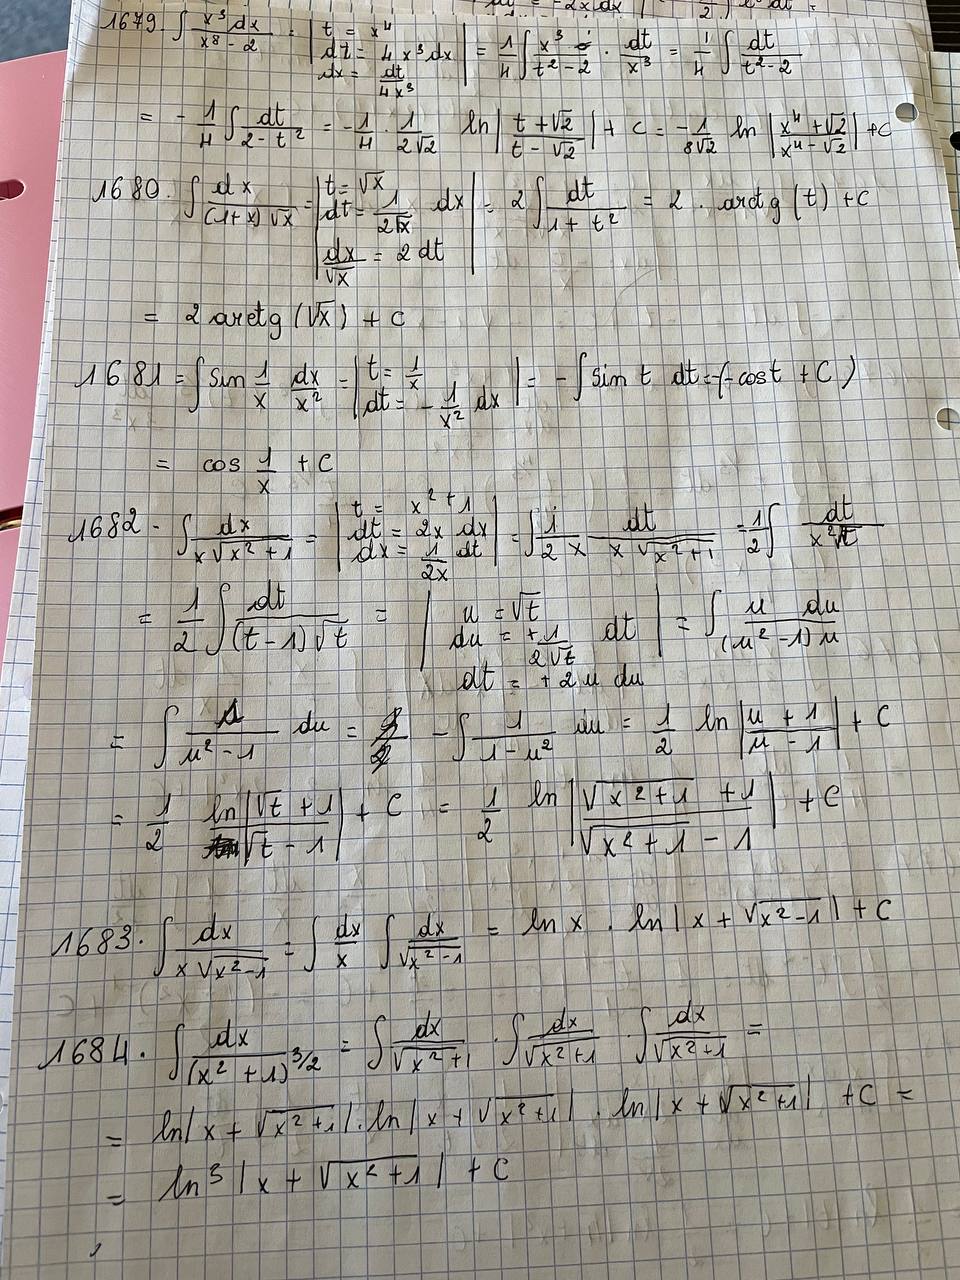 1679. ∫ x³dx / (x⁸ - 2) = | t = x⁴ ; dt = 4x³dx ; dx = dt/4x³ | = 1/4 ∫ x³ / (t² - 2) · dt/x³ = 1/4 ∫ dt / (t² - 2)
= - 1/4 ∫ dt / (2 - t²) = - 1/4 · 1/2√2 ln | (t + √2) / (t - √2) | + C = - 1/8√2 ln | (x⁴ + √2) / (x⁴ - √2) | + C
1680. ∫ dx / ((1+x)√x) = | t = √x ; dt = 1/2√x dx ; dx/√x = 2dt | = 2 ∫ dt / (1 + t²) = 2 · arctg (t) + C
= 2 arctg (√x) + C
1681 = ∫ sin 1/x dx/x² = | t = 1/x ; dt = - 1/x² dx | = - ∫ sin t dt = -(-cost + C)
= cos 1/x + C
1682 - ∫ dx / (x√(x² + 1)) = | t = x² + 1 ; dt = 2x dx ; dx = 1/2x dt | = ∫ 1/2x dt / (x√(x² + 1)) = 1/2 ∫ dt / (x²√t)
= 1/2 ∫ dt / ((t - 1)√t) = | u = √t ; du = + 1/2√t dt ; dt = + 2u du | = ∫ u du / ((u² - 1)u)
= ∫ 1 / (u² - 1) du = - ∫ 1 / (1 - u²) du = 1/2 ln | (u + 1) / (u - 1) | + C
= 1/2 ln | (√t + 1) / (√t - 1) | + C = 1/2 ln | (√(x² + 1) + 1) / (√(x² + 1) - 1) | + C
1683. ∫ dx / (x√(x² - 1)) = ∫ dx/x ∫ dx / √(x² - 1) = ln x · ln | x + √(x² - 1) | + C
1684. ∫ dx / (x² + 1)^3/2 = ∫ dx / √(x² + 1) · ∫ dx / √(x² + 1) · ∫ dx / √(x² + 1) =
= ln | x + √(x² + 1) | · ln | x + √(x² + 1) | · ln | x + √(x² + 1) | + C =
= ln³ | x + √(x² + 1) | + C